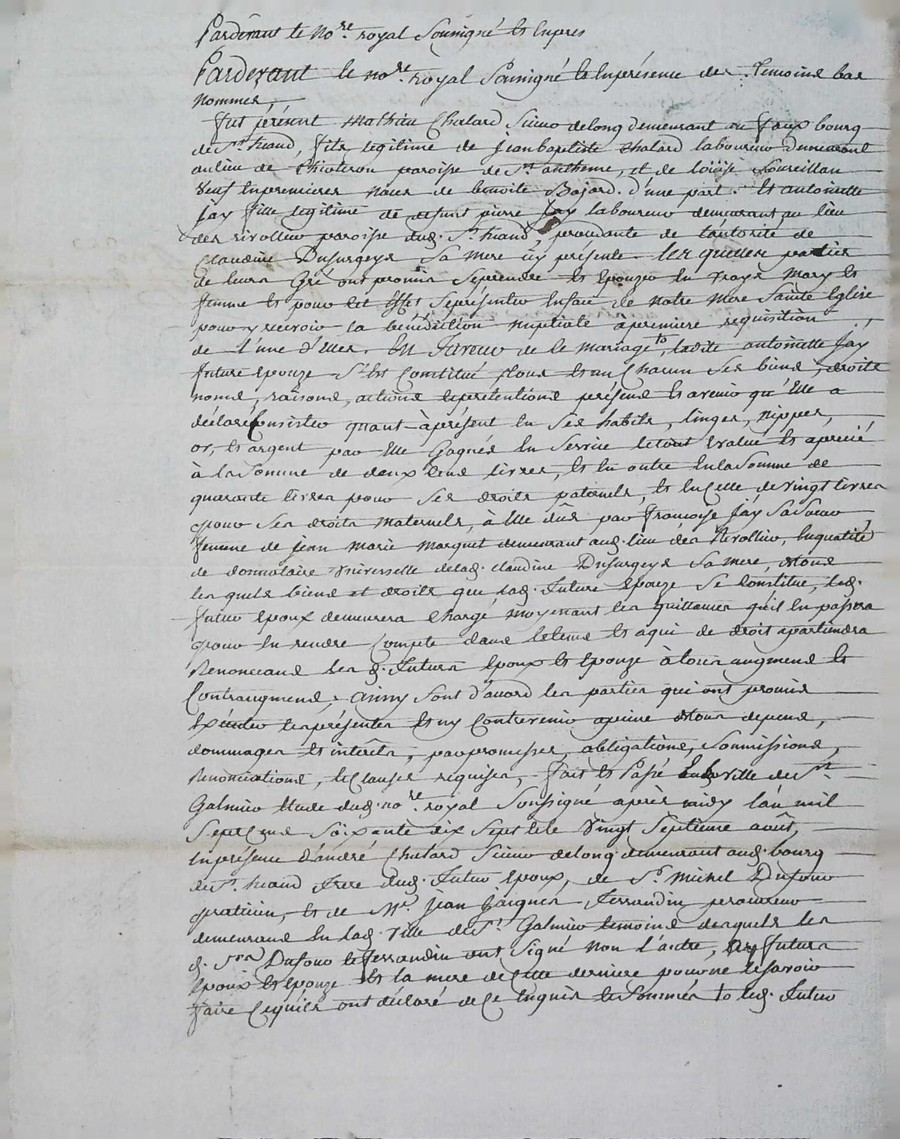 Pardevant le No.re royal Soussigné Et Enpres
Pardevant le no.re royal Soussigné Et Enprésence des Temoins bas
Nommes,
fut présent Mathieu Chatard Scieur delong demeurant au faux bourg
de St. heand, fils legitime de jean baptiste Chatard laboureur demeurant
au lieu de paroisse de St. antheme, et de loüise Soureillan
veuf Enpremieres Noces de benoite Bajard. d'une part. Et antoinette
jay fille legitime de defunt pierre jay laboureur demeurant, au lieu
des rivollier paroisse dud. St. heand, procedante de l'autorité de
Claudine Dusurgeys Sa mere icy présente. lesquelles parties
de leurs Gré ont promis Seprendre Et Epouzer En vrays Mary Et
femme Et pour Cet Effet Sepresenter Enface de Notre Mere Sainte Eglise
pour y recevoir la bénédiction Nuptiale apremiere requisition
de l'une d'Elles. En faveur de le mariage to, ladite antoinette jay
future Epouze S'est Constitué Tous Etun Chacun Ses biens, droits
noms, raisons, actions Et prétentions présens Et avenir qu'Elle a
déclaré Consister quant-àprésent En Ses habits, linges, Nippes,
or, Et argent par Elle Gagnés En Service letout Evalué Et aprecié
à la Somme de deux Cens livres, Et En outre Enla Somme de
quarante livres pour Ses droits paternels, Et En Celle de Vingt livres
pour Ses droits maternels, à Elle dûs par françoise jay Sa Soeur
femme de jean Marie Marquet demeurant aud. lieu des Rivollier, Enqualité
de donnataire Universelle de lad. Claudine Dusurgeys Sa mere, detous
lesquels biens et droits que lad. future Epouze Se Constitue, led.
futur Epoux demeurera Chargé moyenant les quittances qu'il En passera
pour En rendre Compte dans letems Et aqui de droit apartiendra
Renonceans les d. futurs Epoux Et Epouze à tous augmens Et
Contraugmens, ainsy Sont d'acord les parties qui ont promis
Exécuter les présentes Et ny Contrevenir apeine detous depens,
dommages Et intérêts, par promesses, obligations, Soumissions,
Renonciations, Et Clauses réquises, fait Et Passé En la Ville de St.
Galmier Etude dud. no.re royal Soussigné après midy l'an mil
Sept Cens Soixante dix Sept Et le Vingt Septieme août,
Enprésence d'andré Chatard Scieur delong demeurant aud. bourg
de St. heand frere dud. futur Epoux, de Sr. Michel Dufour
praticien, Et de Me. jean jacques ferrandin procureur
demeurans En lad. Ville de St. Galmier temoins desquels les
d. Srs. Dufour Et ferrandin ont Signé Non l'autre, Ny futurs
Epoux Et Epouze Et la mere de Cette derniere pour ne le Savoir
faire Cequ'ils ont déclaré de Ce Enquis Et Sommés to led. futur